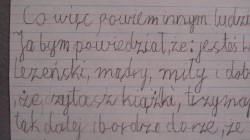 Co więc powiem innym ludzi
Ja bym powiedział, że: jesteś k
leżeński, mądry, miły i dob
, że czytasz książki, trzymaj
tak dalej i bardzo dobrze, że